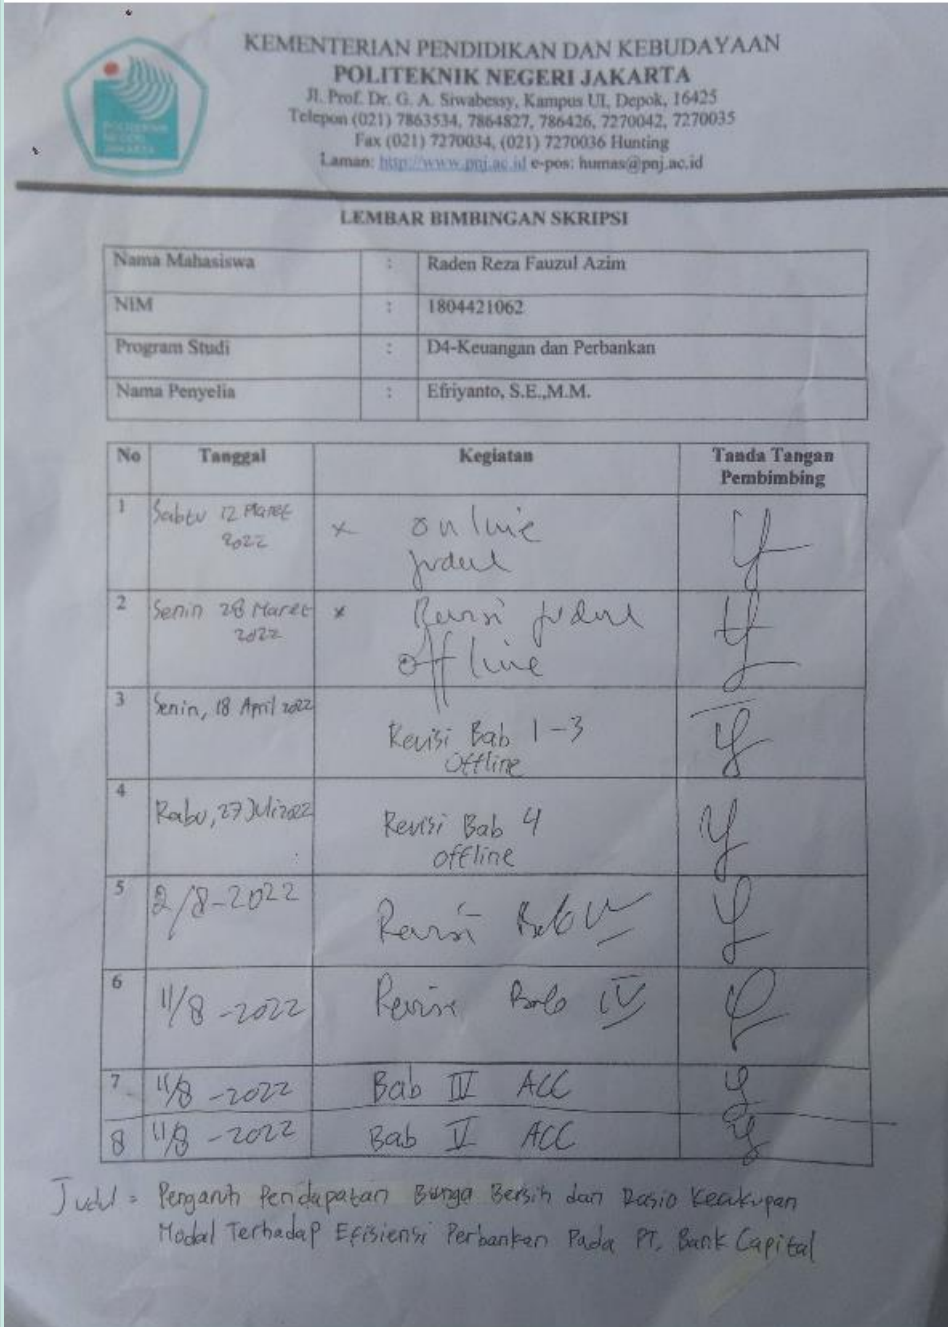 KEMENTERIAN PENDIDIKAN DAN KEBUDAYAAN
POLITEKNIK NEGERI JAKARTA
Jl. Prof. Dr. G. A. Siwabessy, Kampus UI, Depok, 16425
Telepon (021) 7863534, 7864827, 786426, 7270042, 7270035
Fax (021) 7270034, (021) 7270036 Hunting
Laman: http://www.pnj.ac.id e-pos: humas@pnj.ac.id
POLITEKNIK
NEGERI
JAKARTA
LEMBAR BIMBINGAN SKRIPSI
Nama Mahasiswa : Raden Reza Fauzul Azim
NIM : 1804421062
Program Studi : D4-Keuangan dan Perbankan
Nama Penyelia : Efriyanto, S.E.,M.M.
No Tanggal Kegiatan Tanda Tangan
Pembimbing
1 Sabtu 12 Maret x online
2022 judul
2 Senin 28 Maret x Revisi judul
2022 offline
3 Senin, 18 April 2022
Revisi Bab 1-3
offline
4
Rabu, 27 Juli 2022 Revisi Bab 4
offline
5 2/8-2022
Revisi Bab
6 11/8-2022 Revisi Bab IV
7 11/8-2022 Bab IV ACC
8 11/8-2022 Bab V ACC
Judul = Pengaruh Pendapatan Bunga Bersih dan Rasio Kecukupan
Modal Terhadap Efisiensi Perbankan Pada PT. Bank Capital